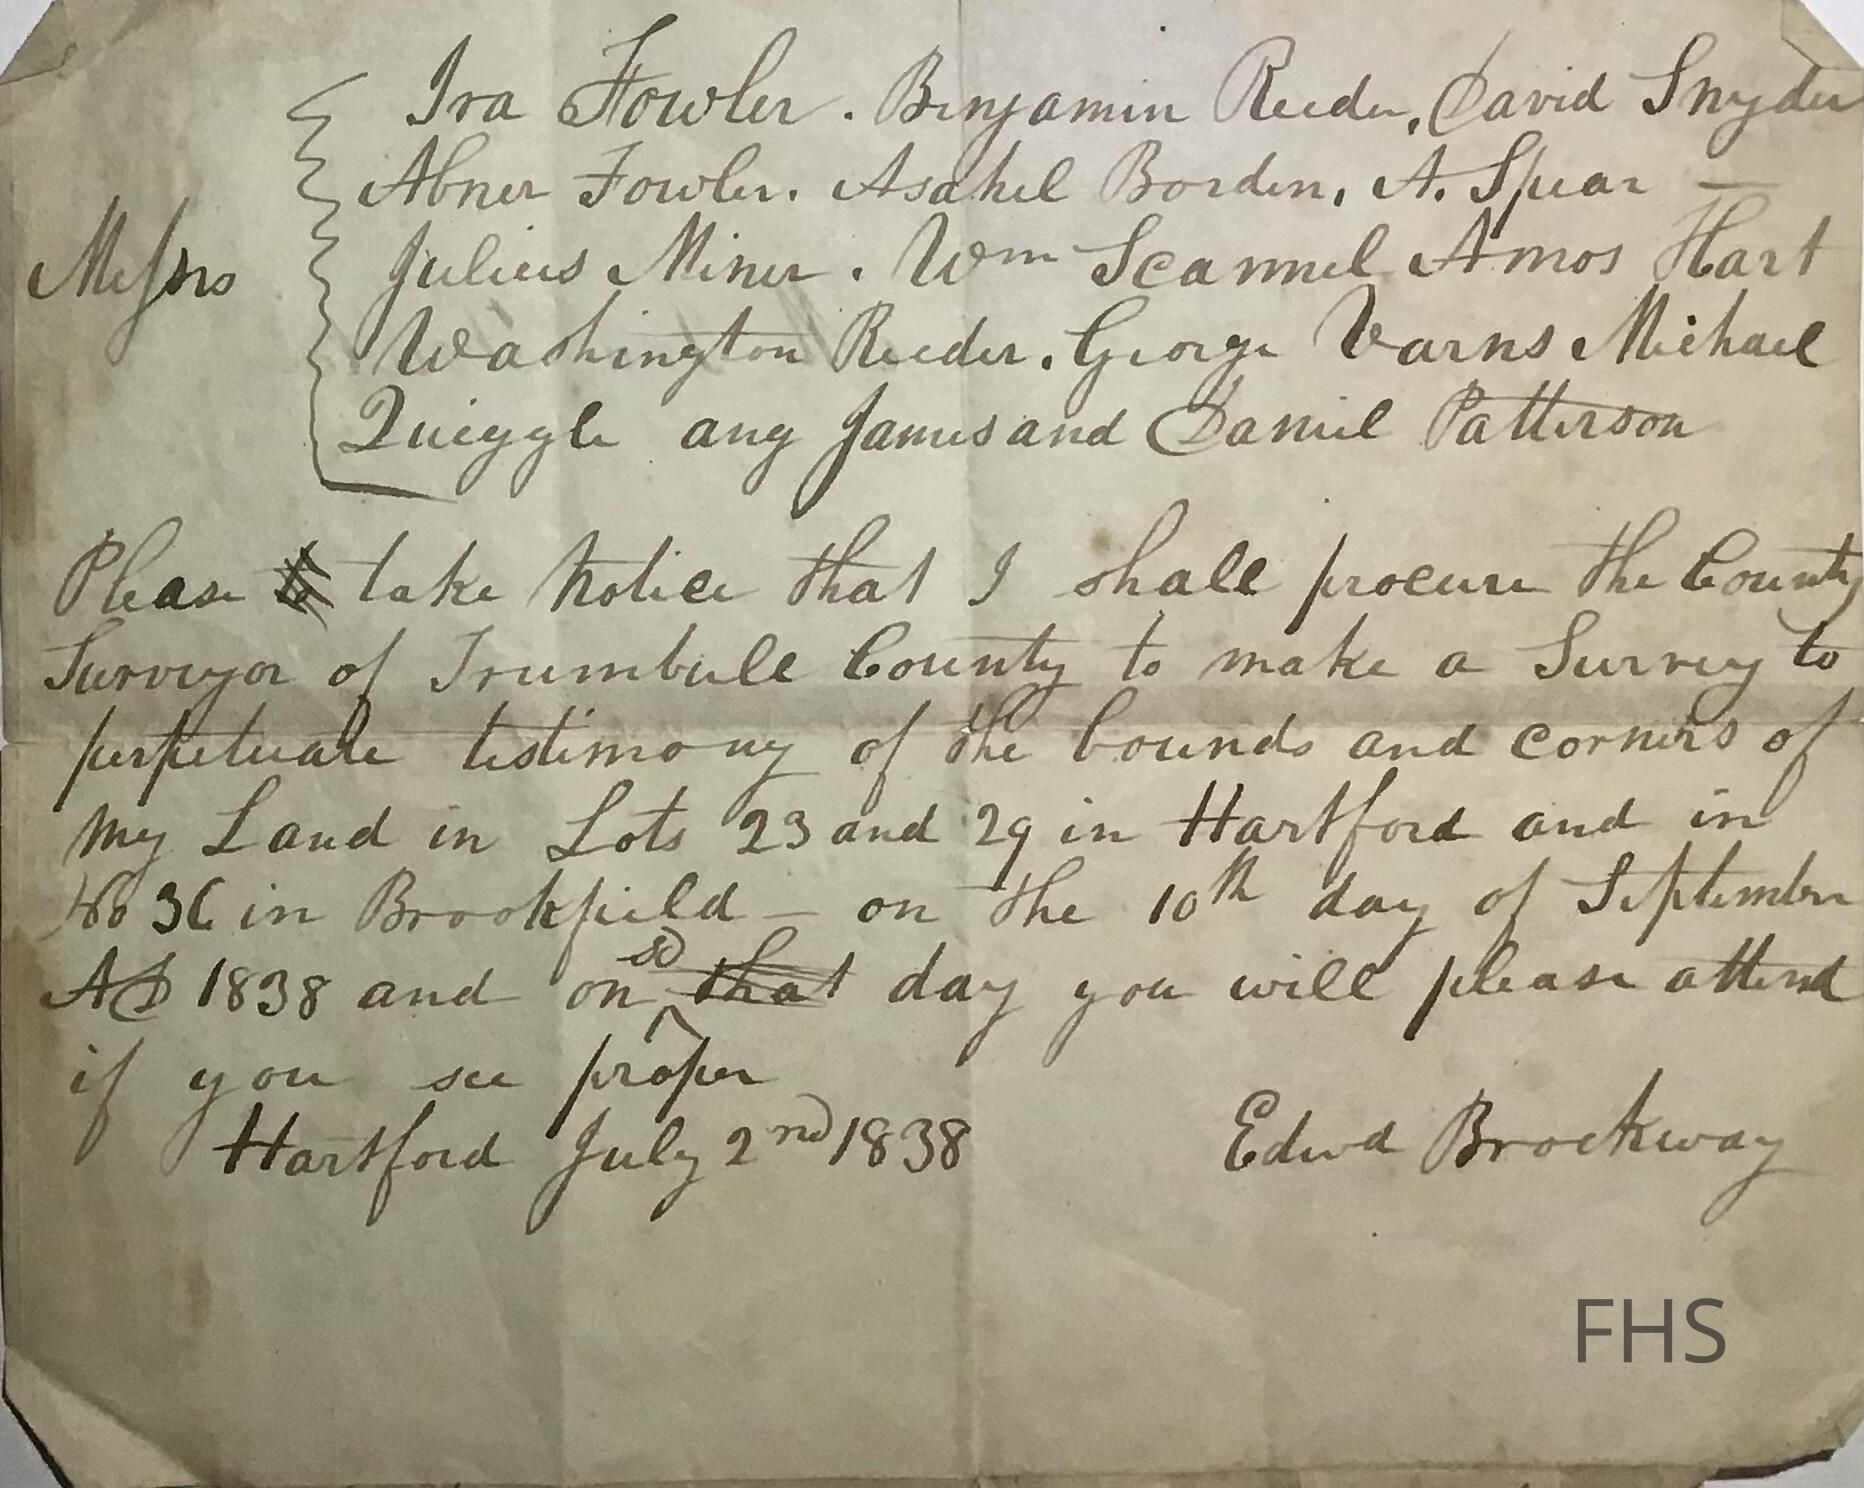 Ira Fowler . Benjamin Reeder, David Snyder
Abner Fowler. Asahel Borden, A. Spear —
Messrs Julius Miner . Wm Scammel Amos Hart
Washington Reeder. George Varns Michael
Quiggle ang James and Daniel Patterson
Please to take Notice that I shall procure the County
Surveyor of Trumbull County to make a Survey to
perpetuate testimony of the bounds and corners of
my Land in Lots 23 and 29 in Hartford and in
No 36 in Brookfield — on the 10th day of September
AD 1838 and on sd that day you will please attend
if you see proper
Hartford July 2nd 1838 Edwd Brockway
FHS